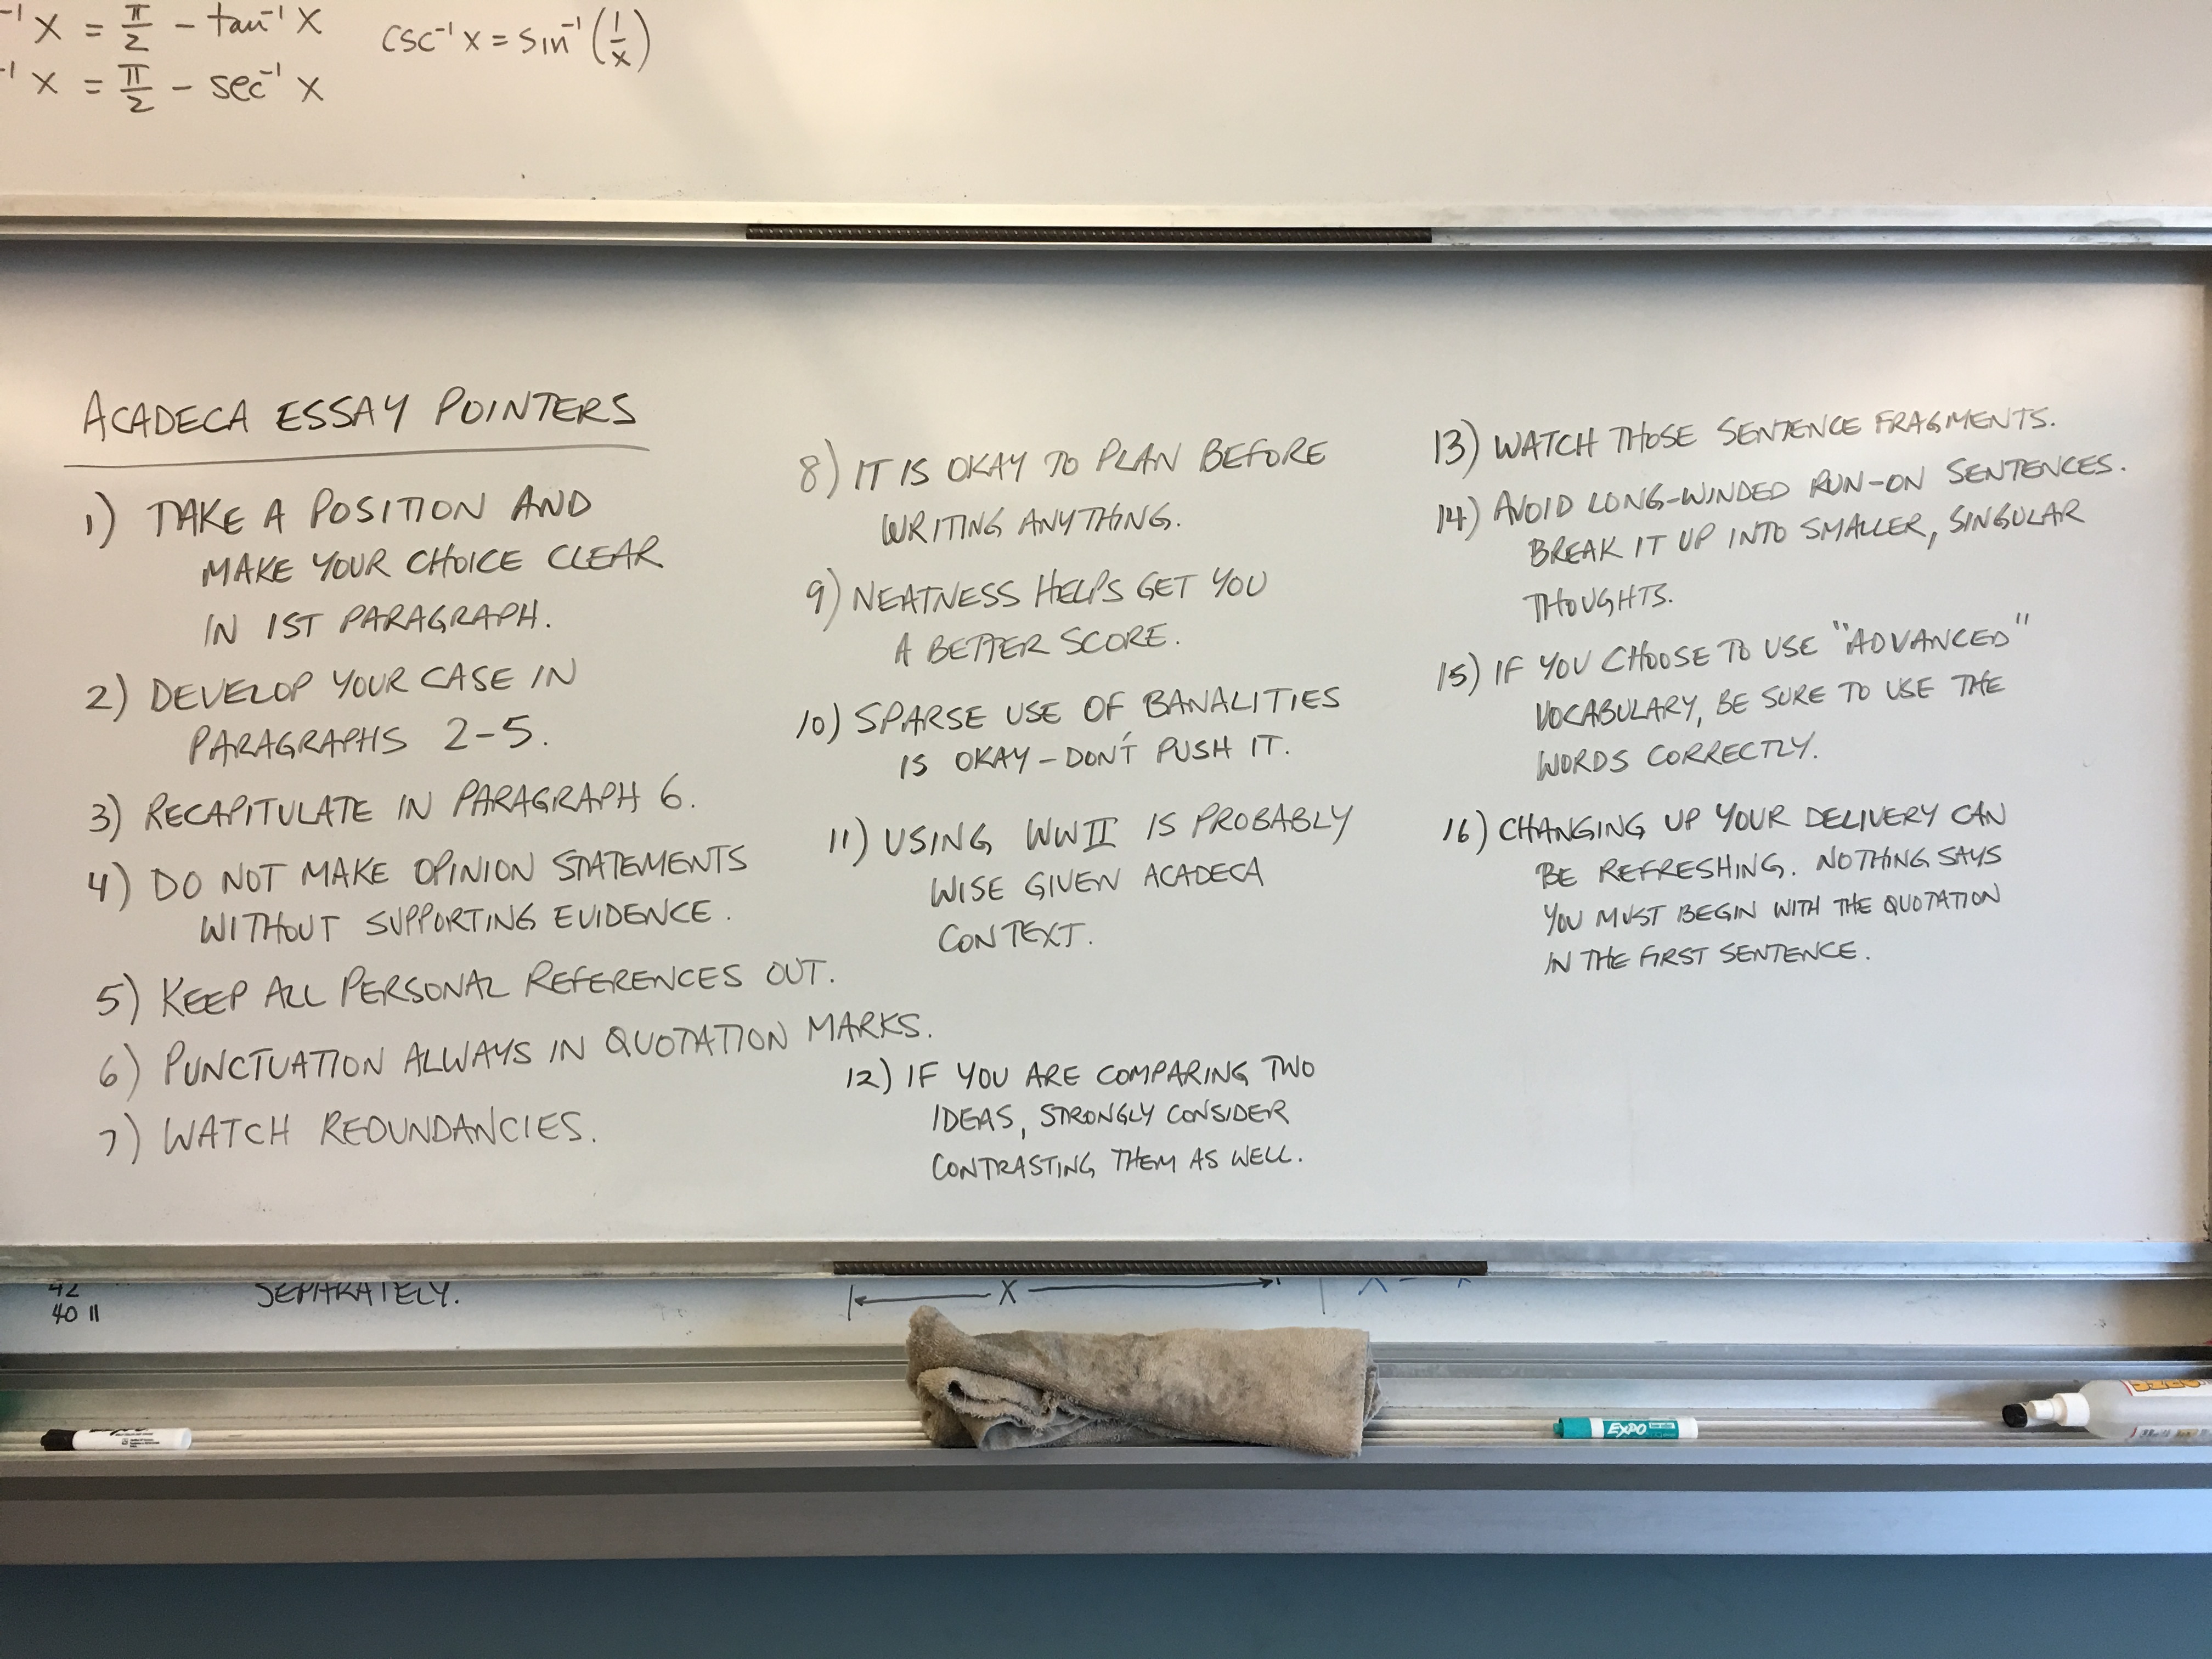 ⁻¹ x = π/2 - tan⁻¹ x
csc⁻¹ x = sin⁻¹ (1/x)
⁻¹ x = π/2 - sec⁻¹ x
ACADECA ESSAY POINTERS
1) TAKE A POSITION AND
MAKE YOUR CHOICE CLEAR
IN 1ST PARAGRAPH.
2) DEVELOP YOUR CASE IN
PARAGRAPHS 2-5.
3) RECAPITULATE IN PARAGRAPH 6.
4) DO NOT MAKE OPINION STATEMENTS
WITHOUT SUPPORTING EVIDENCE.
5) KEEP ALL PERSONAL REFERENCES OUT.
6) PUNCTUATION ALWAYS IN QUOTATION MARKS.
7) WATCH REDUNDANCIES.
8) IT IS OKAY TO PLAN BEFORE
WRITING ANYTHING.
9) NEATNESS HELPS GET YOU
A BETTER SCORE.
10) SPARSE USE OF BANALITIES
IS OKAY - DON'T PUSH IT.
11) USING WWII IS PROBABLY
WISE GIVEN ACADECA
CONTEXT.
12) IF YOU ARE COMPARING TWO
IDEAS, STRONGLY CONSIDER
CONTRASTING THEM AS WELL.
13) WATCH THOSE SENTENCE FRAGMENTS.
14) AVOID LONG-WINDED RUN-ON SENTENCES.
BREAK IT UP INTO SMALLER, SINGULAR
THOUGHTS.
15) IF YOU CHOOSE TO USE "ADVANCED"
VOCABULARY, BE SURE TO USE THE
WORDS CORRECTLY.
16) CHANGING UP YOUR DELIVERY CAN
BE REFRESHING. NOTHING SAYS
YOU MUST BEGIN WITH THE QUOTATION
IN THE FIRST SENTENCE.
42
40 11
SEPARATELY.
X
EXPO